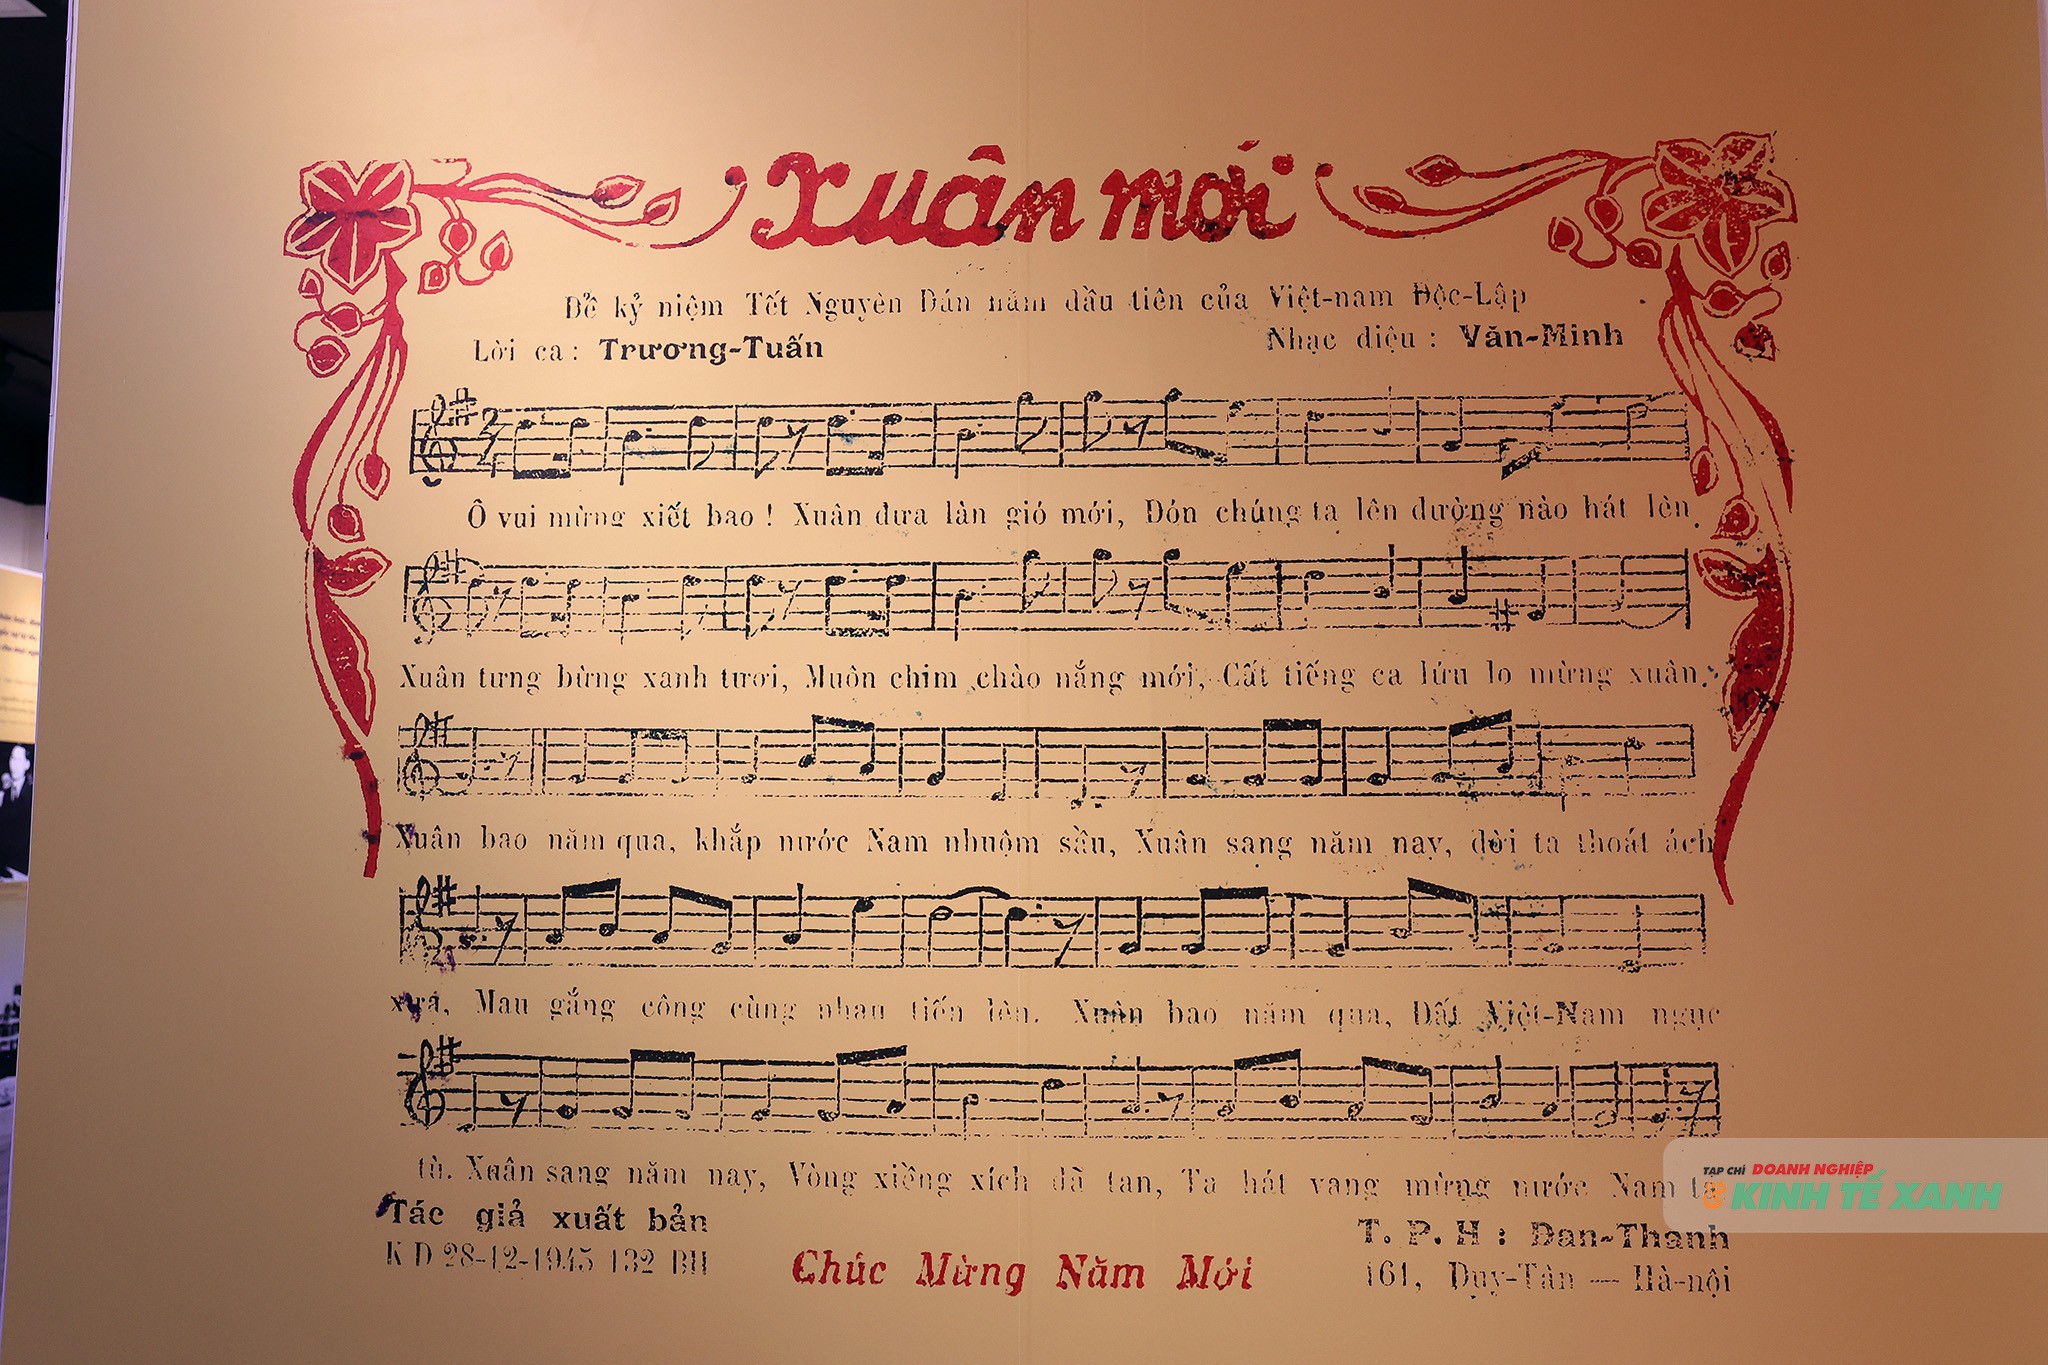 Xuân mới
Để kỷ niệm Tết Nguyên Đán năm đầu tiên của Việt-nam Độc-Lập
Lời ca : Trương-Tuấn
Nhạc điệu : Văn-Minh
Ô vui mừng xiết bao ! Xuân đưa làn gió mới, Đón chúng ta lên đường nào hát lên.
Xuân tưng bừng xanh tươi, Muôn chim chào nắng mới, Cất tiếng ca lứu lo mừng xuân.
Xuân bao năm qua, khắp nước Nam nhuộm sầu, Xuân sang năm nay, đời ta thoát ách
xưa, Mau gắng công cùng nhau tiến lên. Xuân bao năm qua, Đất Việt-Nam ngục
tù. Xuân sang năm nay, Vòng xiềng xích đã tan, Ta hát vang mừng nước Nam ta
Tác giả xuất bản
K D 28-12-1945 132 BH
Chúc Mừng Năm Mới
T. P. H : Đan-Thanh
161, Duy-Tân — Hà-nội
TẠP CHÍ DOANH NGHIỆP
& KINH TẾ XANH